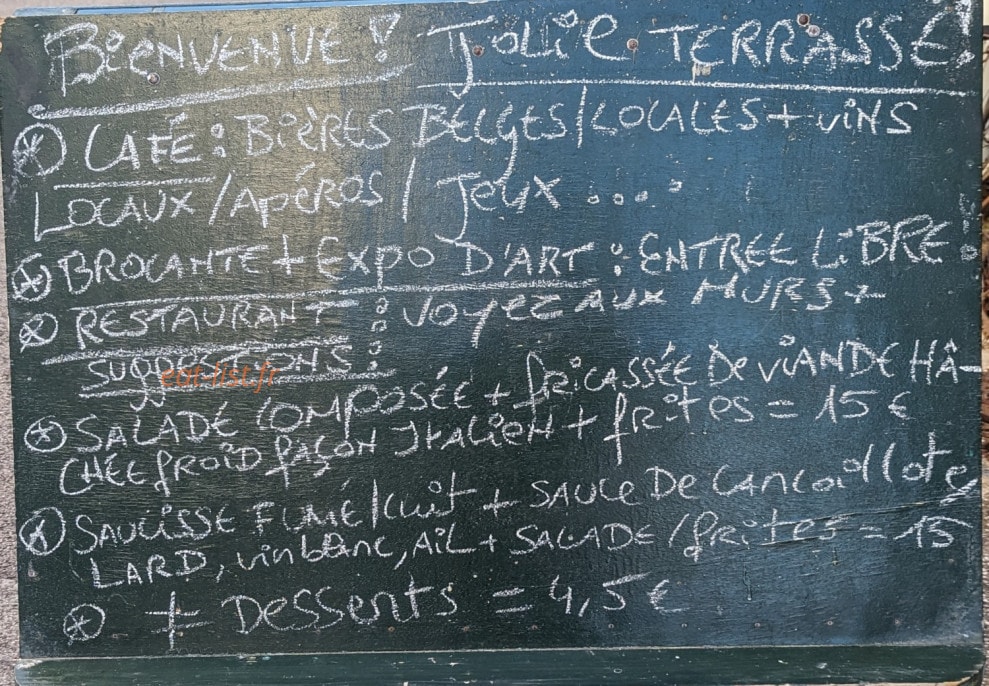 BIENVENUE ! JOLIE TERRASSE !
CAFÉ : BIÈRES BELGES / LOCALES + VINS
LOCAUX / APÉROS / JEUX ...
BROCANTE + EXPO D'ART : ENTREE LIBRE !
RESTAURANT : VOYEZ AUX MURS +
SUGGESTIONS :
eat-list.fr
SALADE COMPOSÉE + FRICASSÉE DE VIANDE HÂ-
CHÉE FROID FAÇON ITALIEN + FRITES = 15 €
SAUCISSE FUMÉ / CUIT + SAUCE DE CANCOILLOTE,
LARD, vin blanc, AIL + SALADE / FRITES = 15
+ DESSERTS = 4,5 €